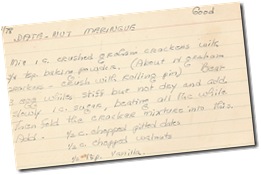 4/78 Good
DATA-NUT MARINGUE
Mix 1 c. crushed graham crackers with
1/4 tsp baking powder. (About 12 graham
crackers - crush with rolling pin) Beat
3 egg whites stiff but not dry and add
slowly 1 c. sugar, beating all the while
Then fold the cracker mixture into this.
Add - 1/2 c. chopped pitted dates
1/2 c. chopped walnuts
1/2 tsp. Vanilla.